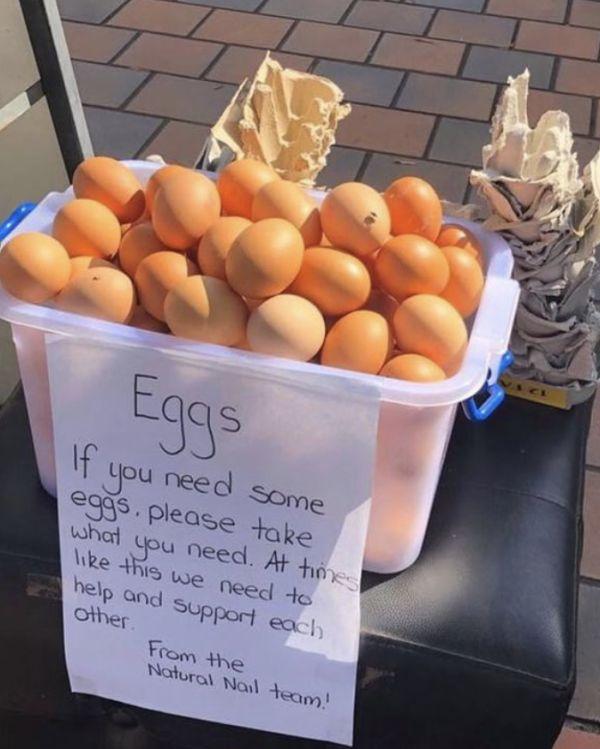 Eggs
If you need some
eggs, please take
what you need. At times
like this we need to
help and support each
other.
From the
Natural Nail team!